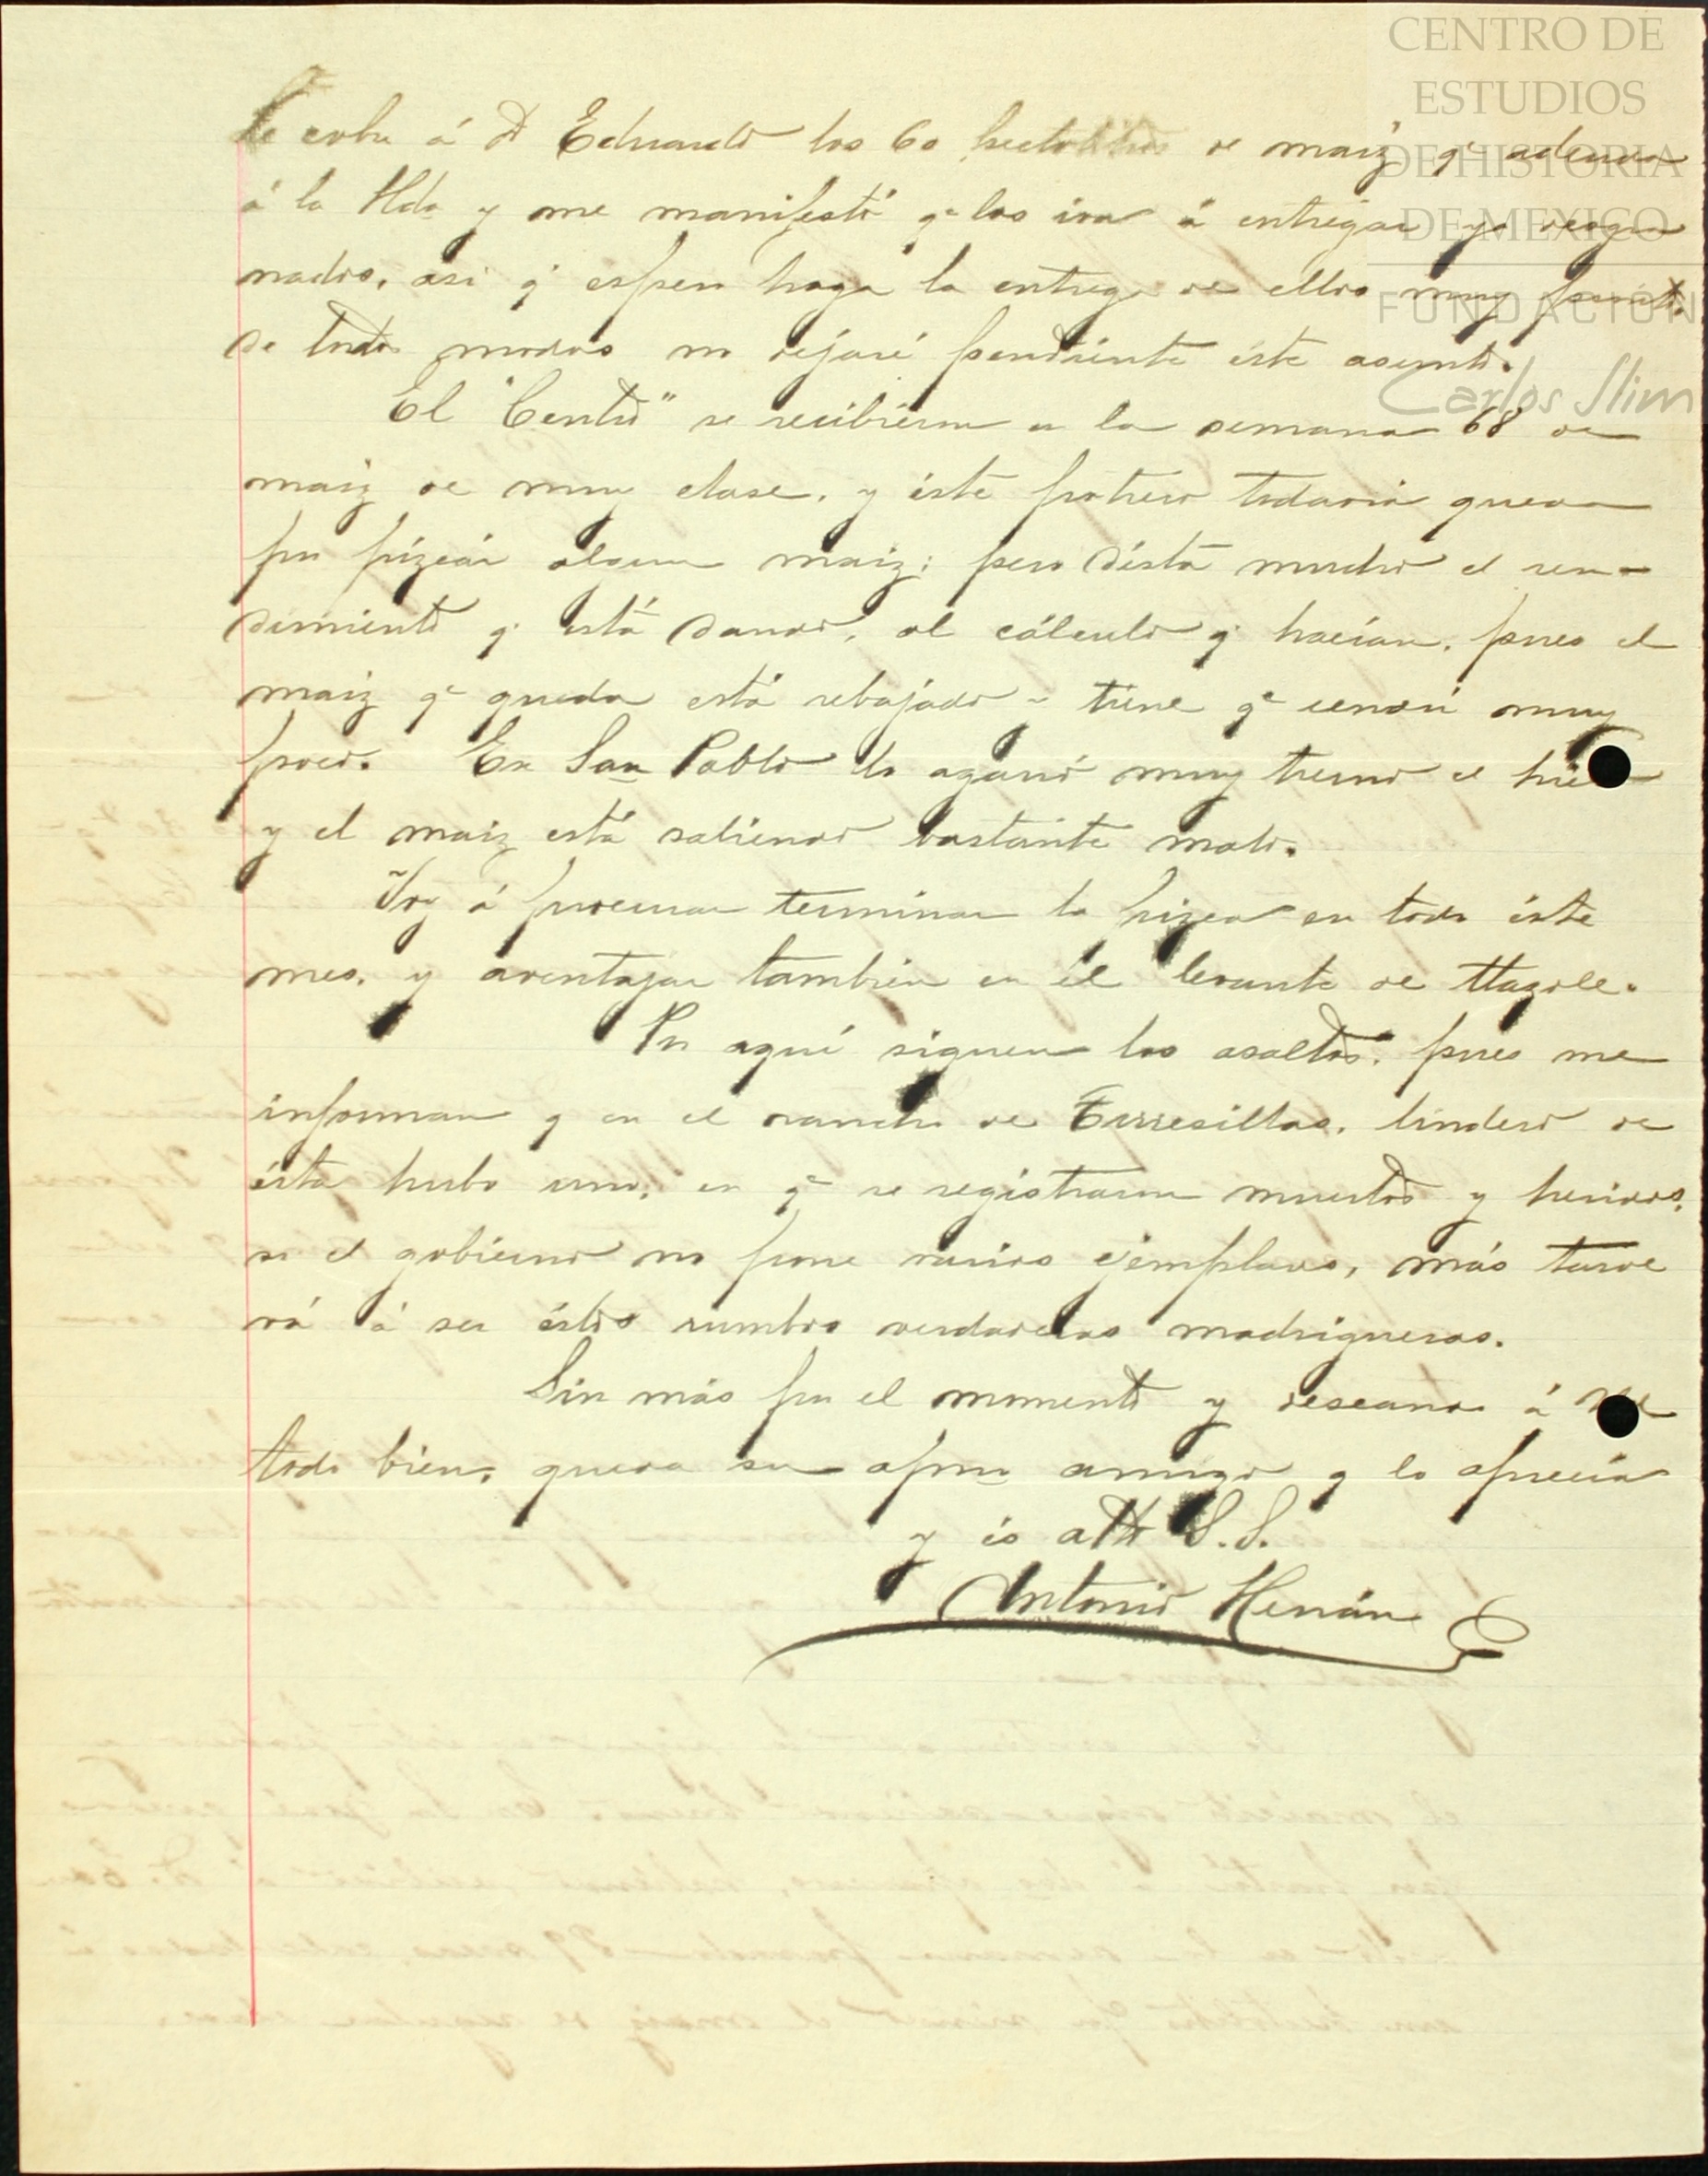 CENTRO DE
ESTUDIOS
DE HISTORIA
DE MEXICO
FUNDACIÓN
Carlos Slim
Le cobré á Dn Eduardo los 60 hectolitros de maiz qe adeuda
á la Hda y me manifestó qe los iva á entregar ya desgra
nados, asi qe espero haga la entrega de ellos muy pronto.
De todos modos no dejaré pendiente éste asunto.
El "Cento" se recibieron en la semana 68 de
maiz de muy clase, y éste potrero todavia queda
por pizcár algun maiz; pero dista mucho el ren-
dimiento qe está dando, al cálculo qe hacian, pues el
maiz qe queda está rebajado y tiene qe rendir muy
poco. En San Pablo lo agarró muy tierno el hielo
y el maiz está saliendo bastante malo.
Voy á procurar terminar la pizca en todo éste
mes, y aventajar también en el levante de tlazole.
Por aquí siguen los asaltos, pues me
informan q en el rancho de Torresillas, lindero de
ésta hubo uno, en qe se registraron muertos y heridos,
si el gobierno no pone varios ejemplares, más tarde
vá á ser éstos rumbos verdaderas madrigueras.
Sin más por el momento y deseando á
todo bien, queda su afmo amigo q lo aprecia
y és atto S.S.
Antonio Hernán